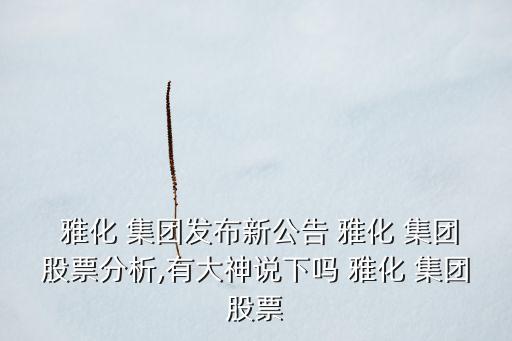 雅化 集团发布新公告 雅化 集团
股票分析,有大神说下吗 雅化 集团
股票